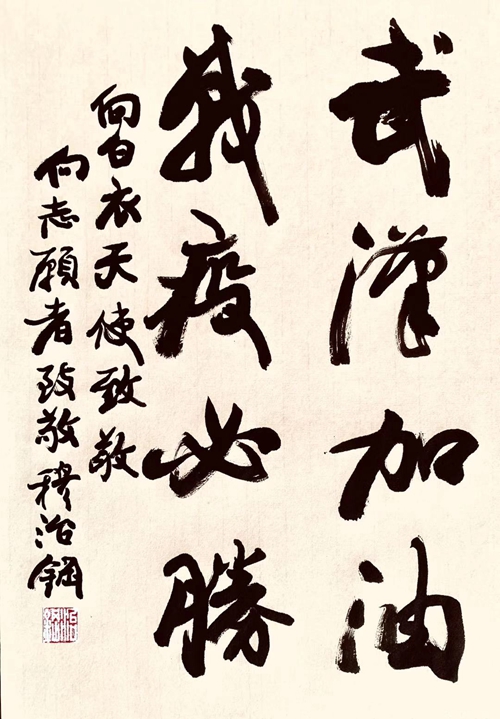 武漢加油
戰疫必勝
向白衣天使致敬
向志願者致敬穆治鋼